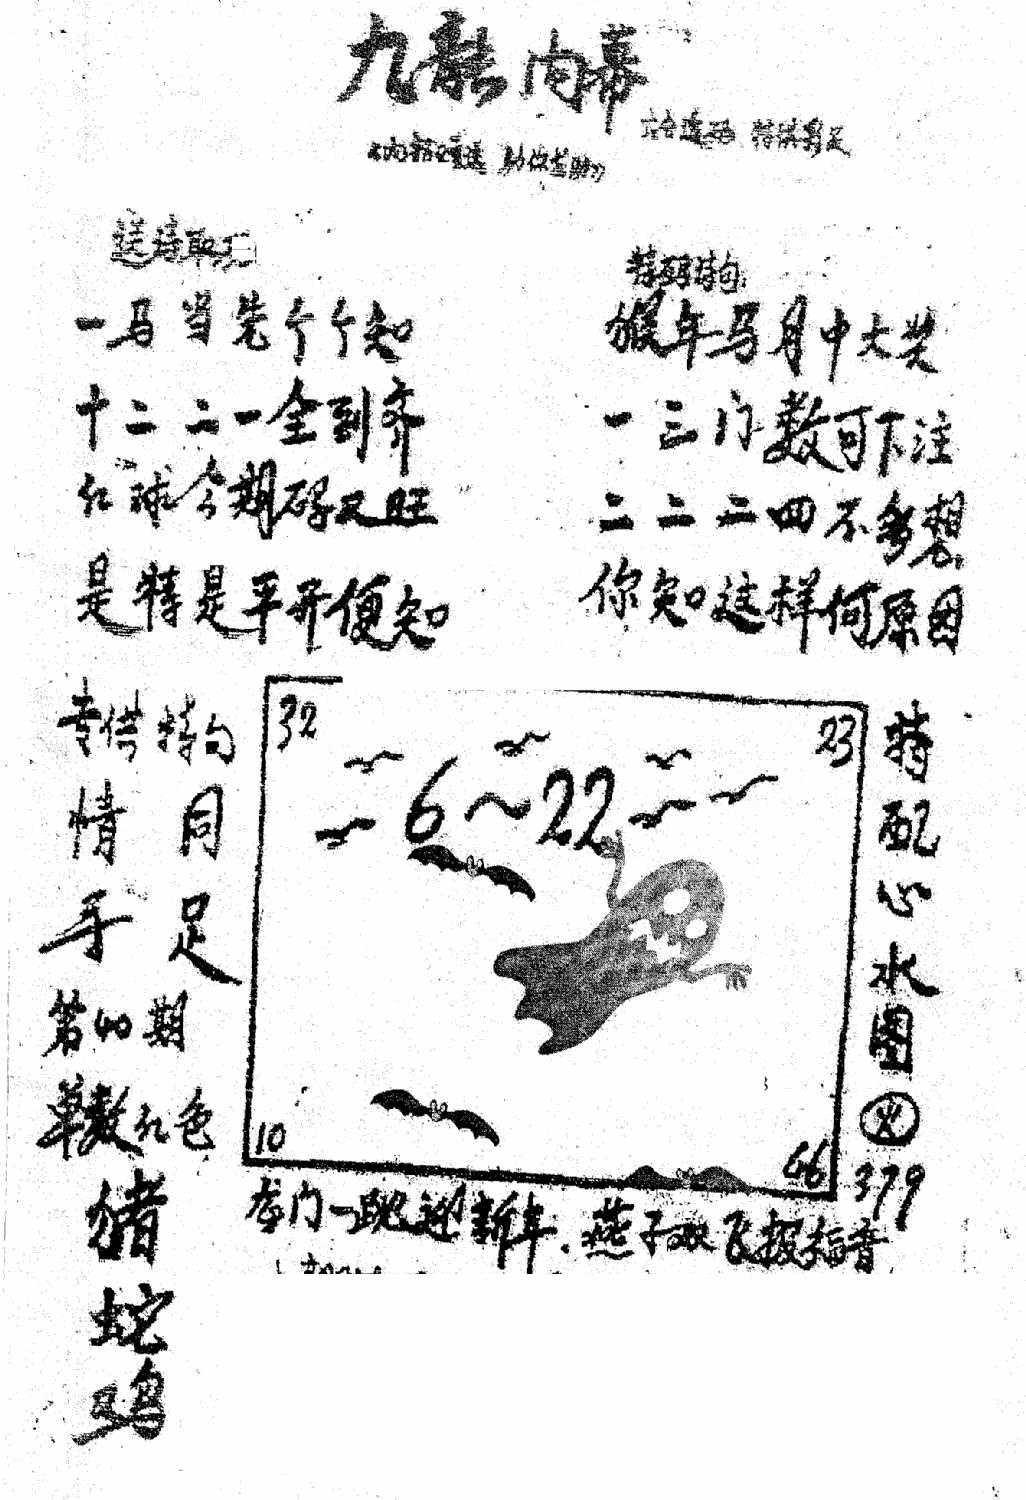 九龍内幕
特码诗句
一马当先个个知
十二二一全到齐
红球今期码又旺
是特是平开便知
猴年马月中大奖
一三门数可下注
二二二四不多想
你知这样何原因
专供特句
情同
手足
第40期
单数红色
猪
蛇
鸡
32
23
6~22
10
46
特配心水图
379
龙门一跳迎新年.燕子双飞报福音